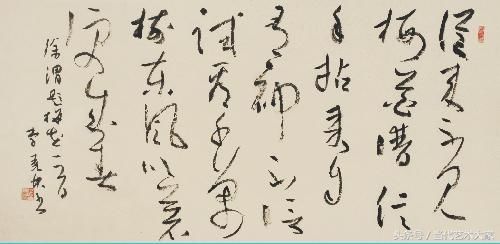 従来不见
梅花譜信
手拈来自
有神不信
試看千萬
樹东風吹着
便成春
徐渭題梅花一首
李 书
头条号 / 当代艺术大家